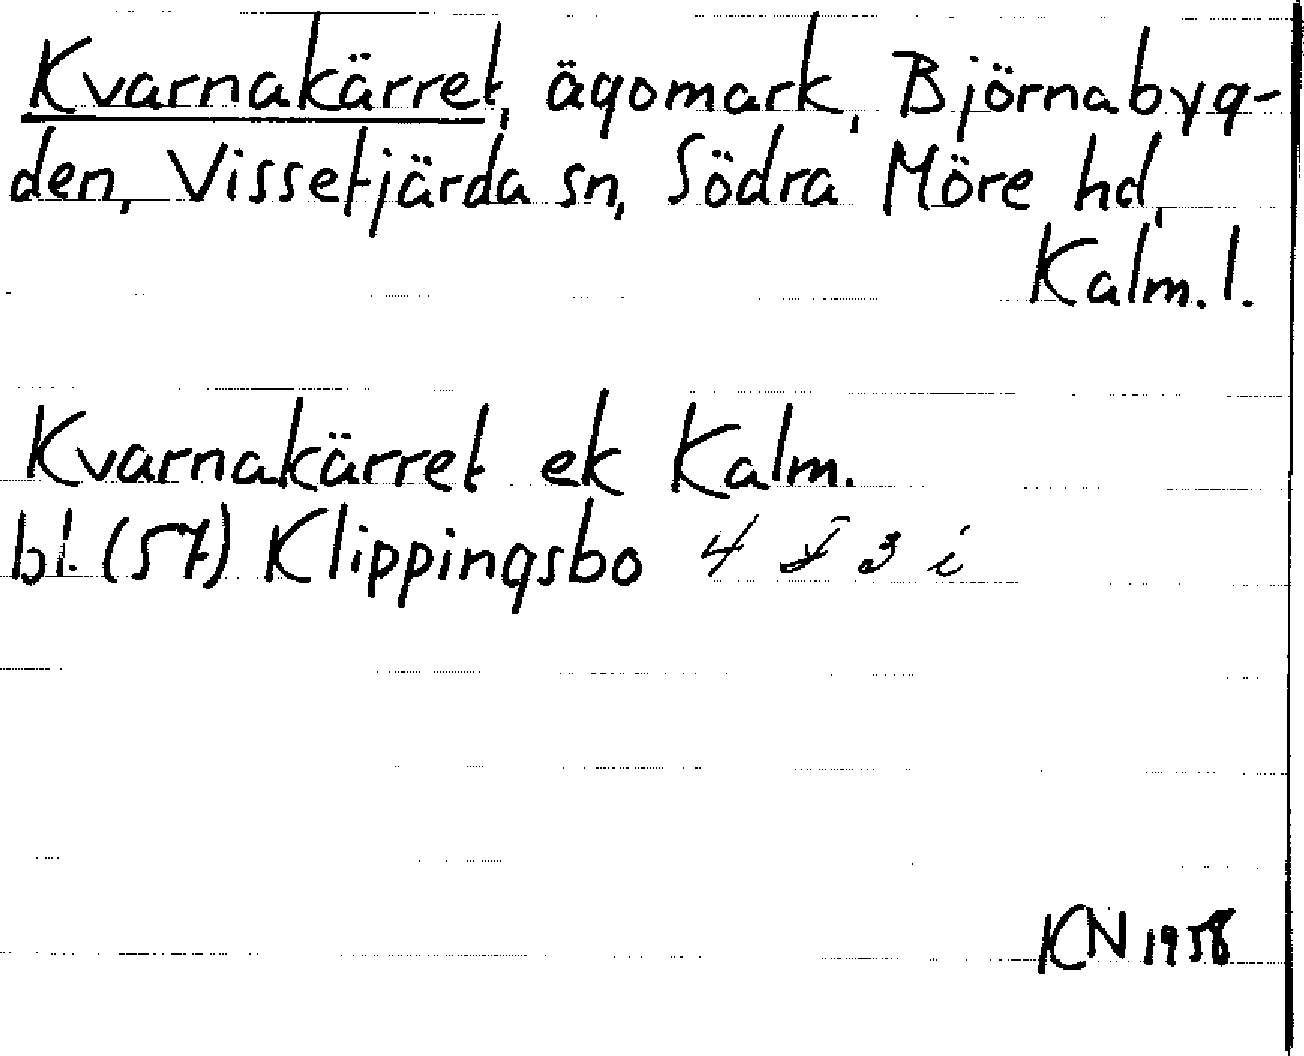 Kvarnakärret, ägomark, Björnabyg-
den, Vissefjärda sn, Södra Möre hd,
Kalm. l.
Kvarnakärret ek Kalm.
bl. (57) Klippingsbo 4 f 3 i
KN 1958